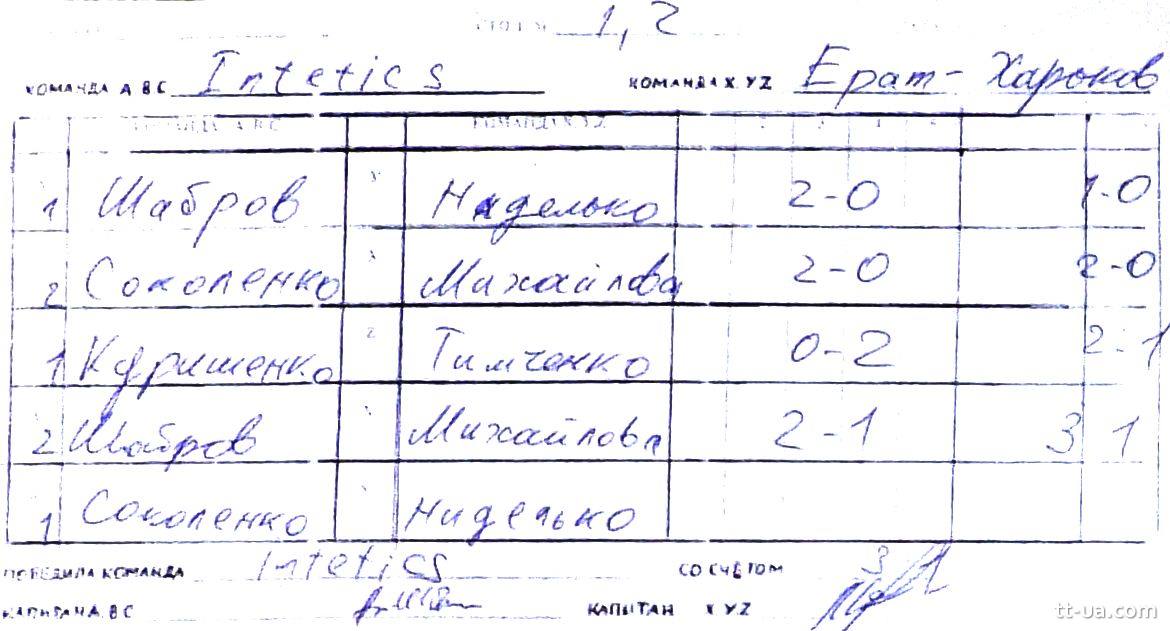 СТОЛ № 1,2
КОМАНДА АВС Intetics КОМАНДА XYZ Ерат-Харьков
КОМАНДА АВС КОМАНДА XYZ
1 Шабров Ниделько 2-0 1-0
2 Соколенко Михайлова 2-0 2-0
1 Тимченко 0-2 2-1
2 Шабров Михайлова 2-1 3 1
1 Соколенко Ниделько
ПОБЕДИЛА КОМАНДА Intetics СО СЧЁТОМ 3 1
КАПИТАН АВС КАПИТАН XYZ
tt-ua.com